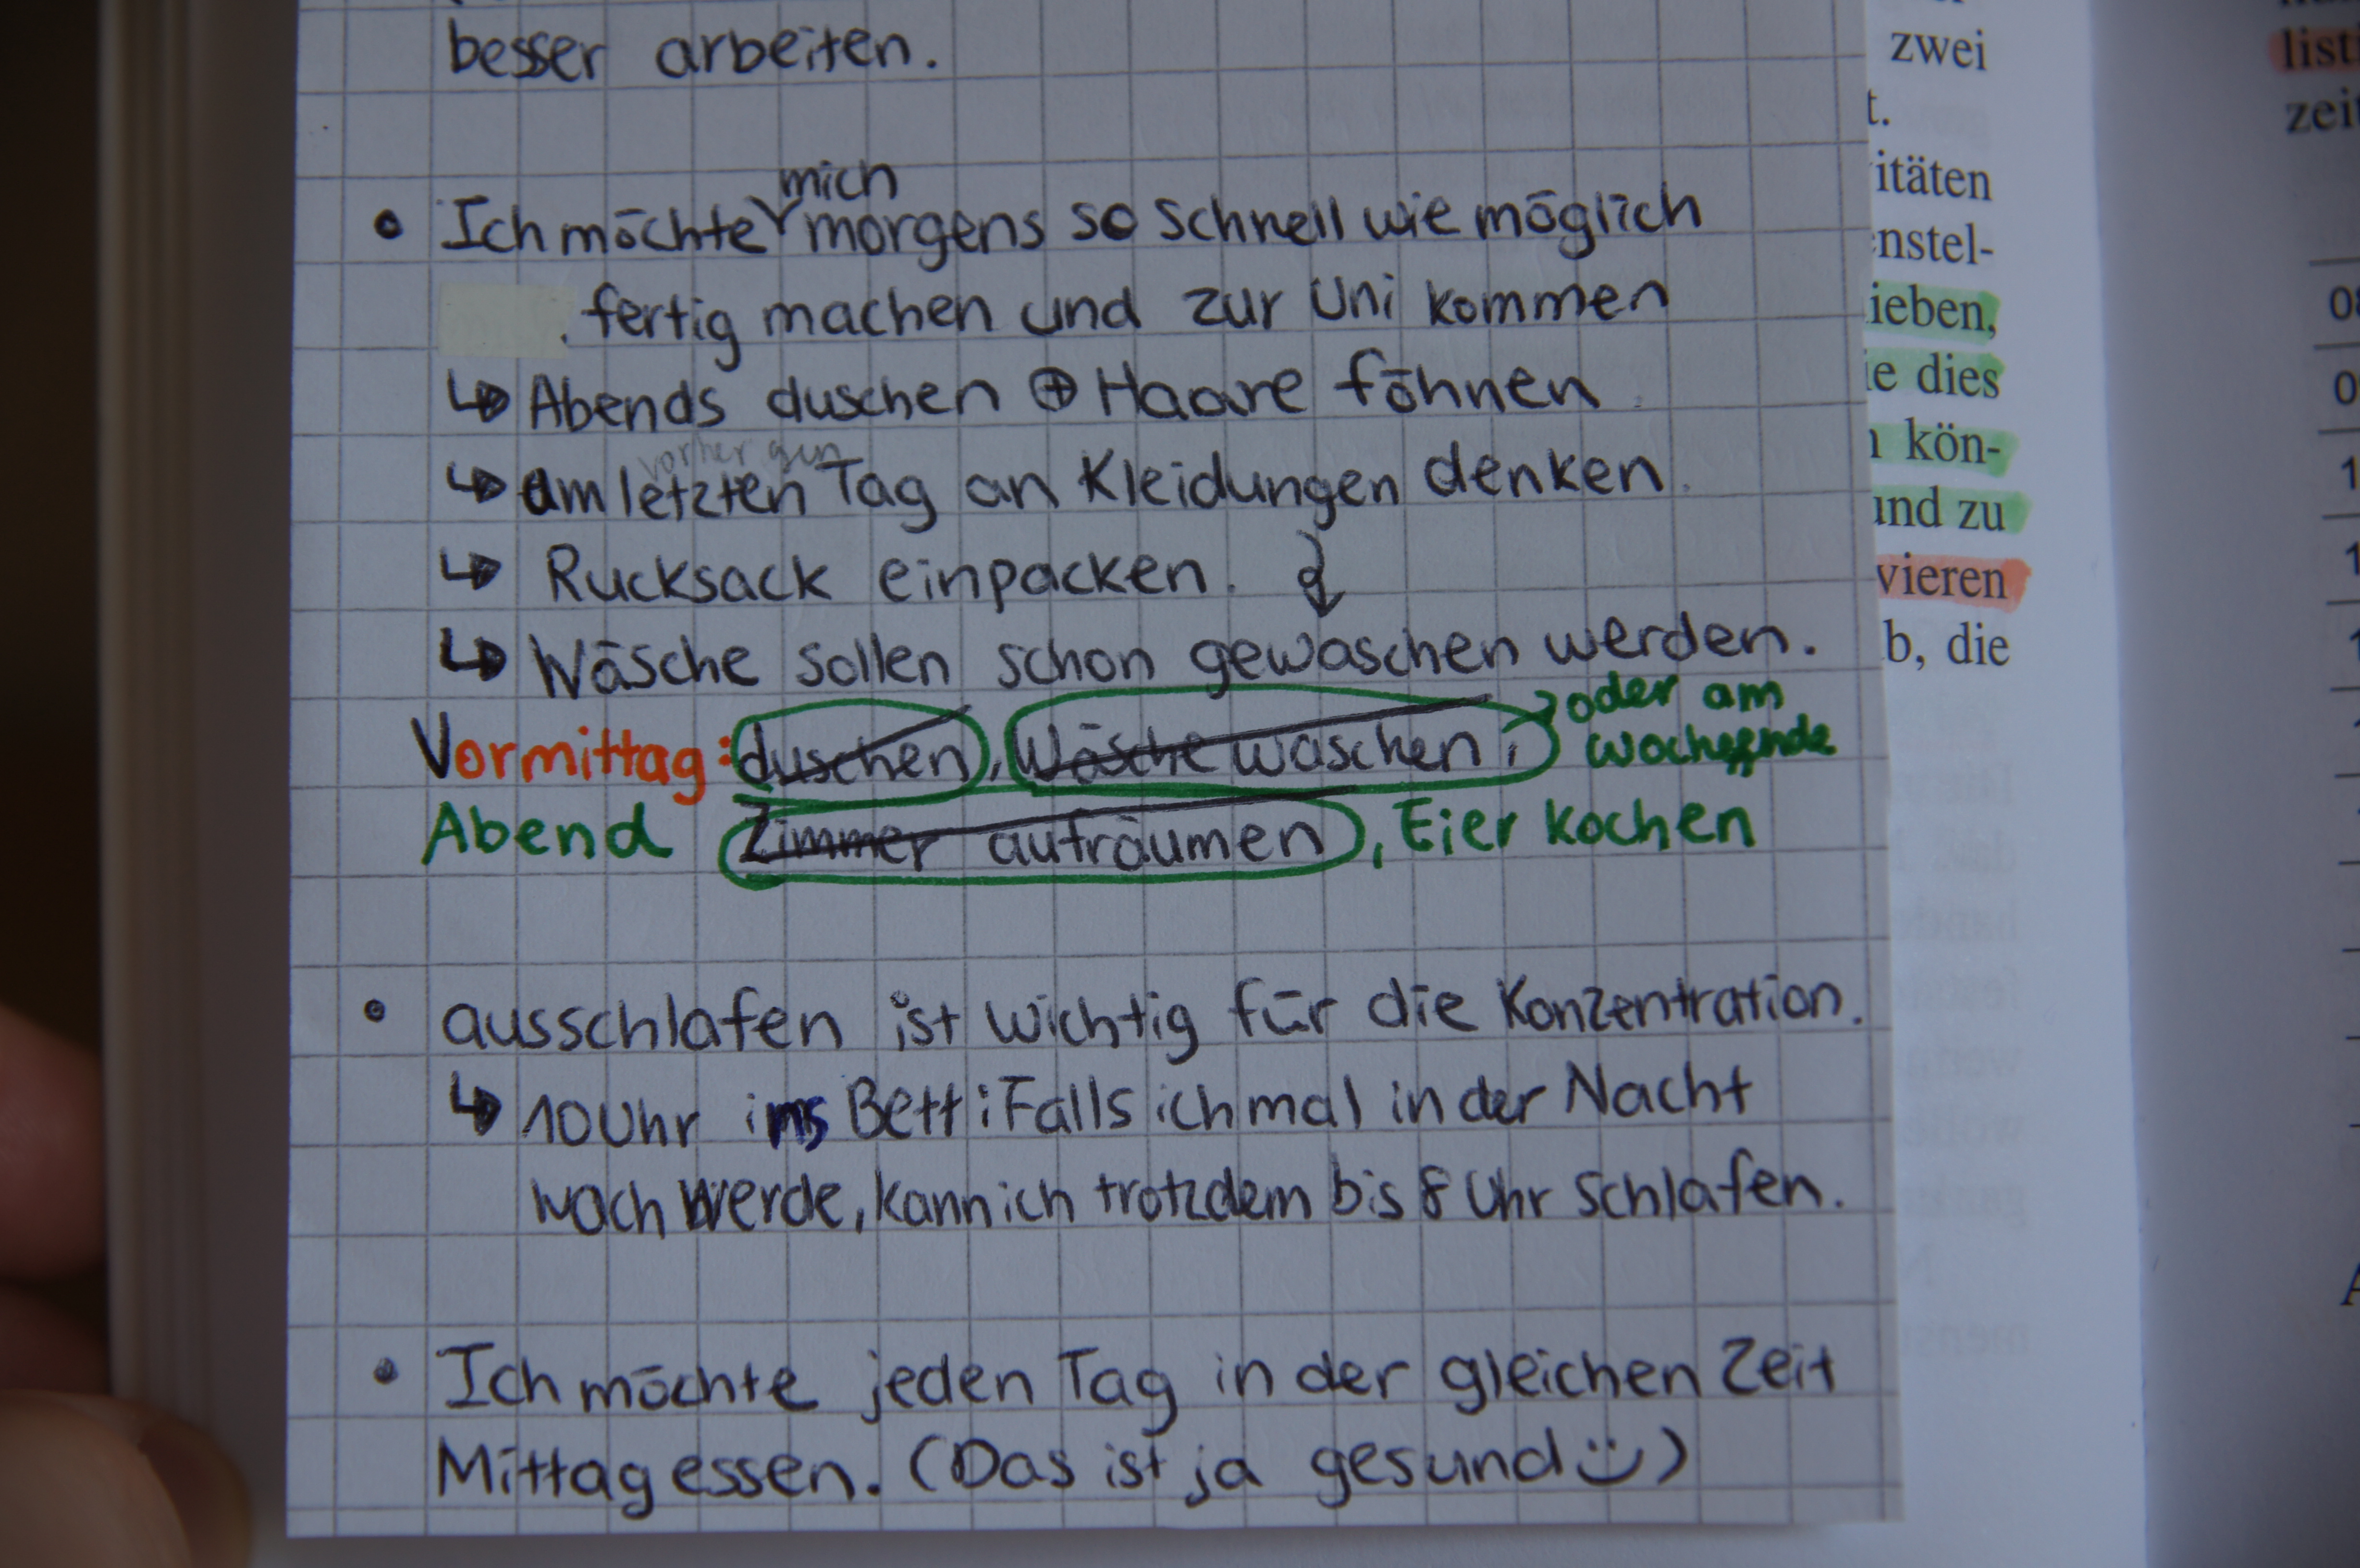 besser arbeiten.
mich
• Ich möchte morgens so schnell wie möglich
fertig machen und zur Uni kommen
↳ Abends duschen ⊕ Haare föhnen
vorher gen
↳ am letzten Tag an Kleidungen denken.
↳ Rucksack einpacken.
↳ Wäsche sollen schon gewaschen werden.
Vormittag: duschen, Wäsche waschen, → oder am
wochenende
Abend Zimmer aufräumen, Eier kochen
• ausschlafen ist wichtig für die Konzentration.
↳ 10 Uhr ins Bett: Falls ich mal in der Nacht
wach werde, kann ich trotzdem bis 8 Uhr schlafen.
• Ich möchte jeden Tag in der gleichen Zeit
Mittag essen. (Das ist ja gesund ü)
zwei
t.
itäten
nstel-
ieben,
ie dies
kön-
und zu
vieren
b, die
list
zeit